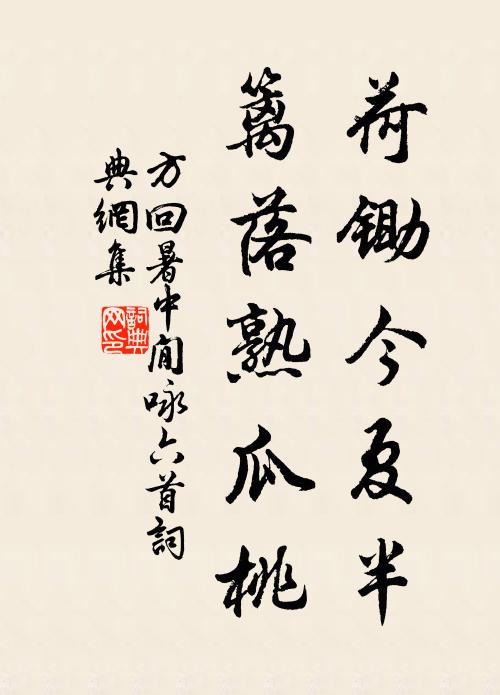 荷鋤今夏半
籬落熟瓜桃
方回暑中閒咏六首詞
典網集
詞典
网印